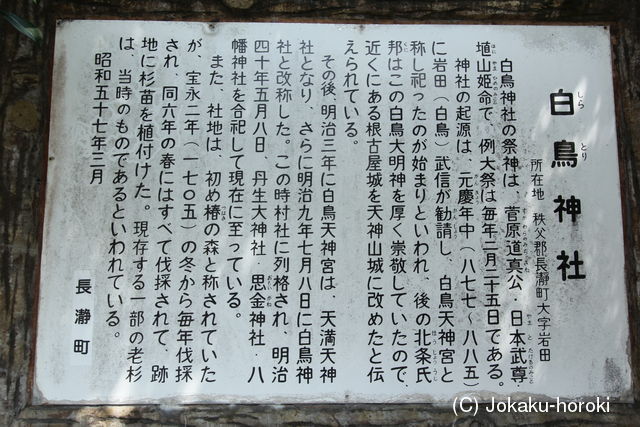 白鳥神社
しら とり
所在地 秩父郡長瀞町大字岩田
白鳥神社の祭神は、菅原道真公・日本武尊・
埴山姫命で、例大祭は毎年二月二十五日である。
神社の起源は、元慶年中（八七七〜八八五）
に岩田（白鳥）武信が勧請し、白鳥天神宮と
称し祀ったのが始まりといわれ、後の北条氏
邦はこの白鳥大明神を厚く崇敬していたので、
近くにある根古屋城を天神山城に改めたと伝
えられている。
その後、明治三年に白鳥天神宮は、天満天神
社となり、さらに明治九年七月八日に白鳥神
社と改称した。この時村社に列格され、明治
四十年五月八日、丹生大神社、思金神社・八
幡神社を合祀して現在に至っている。
また、社地は、初め椿の森と称されていた
が、宝永二年（一七〇五）の冬から毎年伐採
され、同六年の春にはすべて伐採されて、跡
地に杉苗を植付けた。現存する一部の老杉
は、当時のものであるといわれている。
昭和五十七年三月
長瀞町
(C) Jokaku-horoki